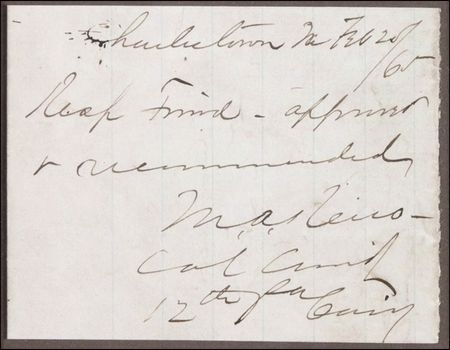 Charlestown Va Feb 20
/65
Resp Forwd - approved
& recommended
M.A. Reno -
Col Comdg
12th Pa Cavy